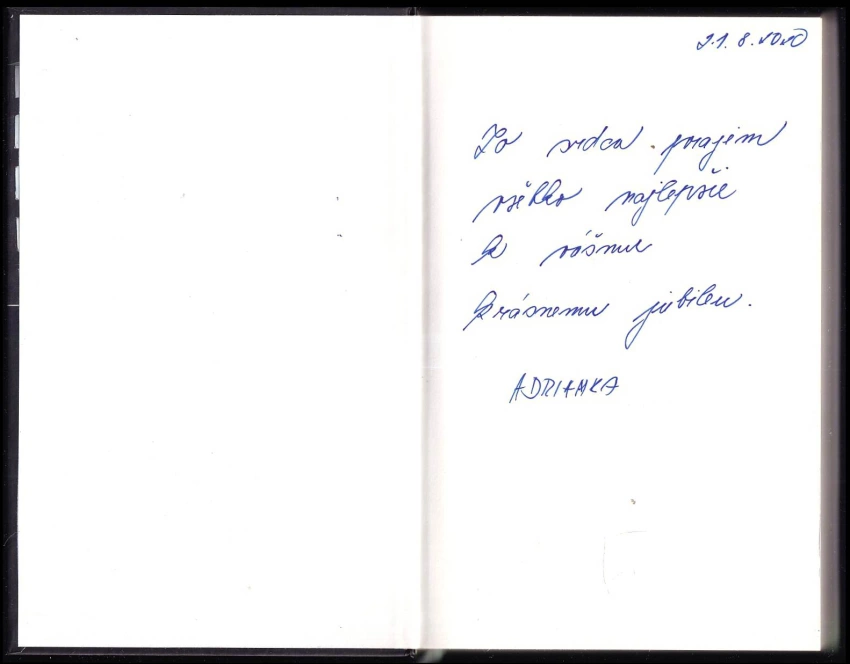 21. 8. 2020
Zo srdca prajem
všetko najlepšie
k vášmu
krásnemu jubileu.
ADRIANKA